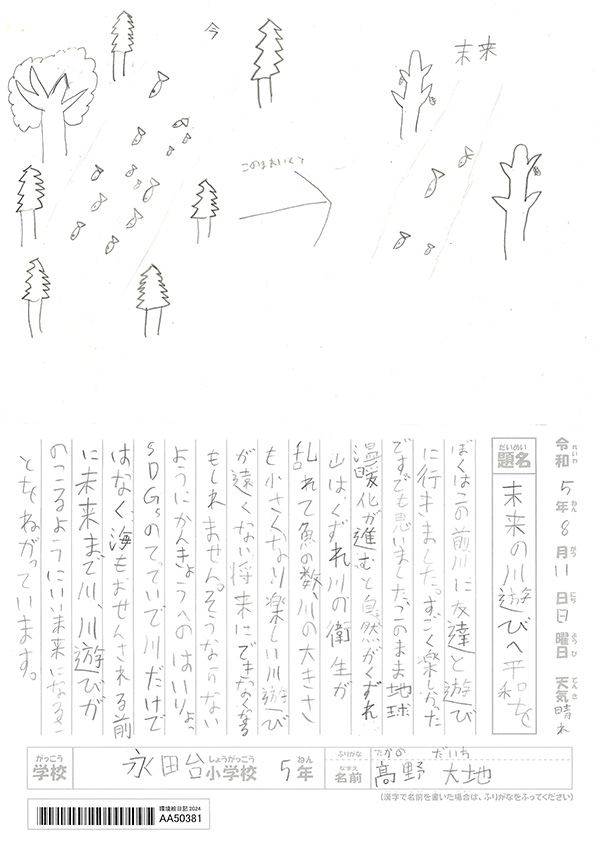 今
未来
このままいくと
令和5年8月11日日曜日 天気晴れ
れいわ ねん がつ にち ようび てんき
だいめい
題名
未来の川遊びへ平和を
ぼくはこの前川に友達と遊び
に行きました。すごく楽しかった
です。でも思いました、このまま地球
温暖化が進むと自然がくずれ
山はくずれ川の衛生が
乱れて魚の数、川の大きさ
も小さくなり楽しい川遊び
が遠くない将来にできなくなる
もしれません。そうならない
ようにかんきょうへのはいりょ、
SDGsのてっていで川だけで
はなく、海もおせんされる前
に未来まで川、川遊びが
のこるようにいい未来になるこ
とをねがっています。
がっこう
学校
永田台小学校
しょうがっこう
5年
ねん
ふりがな
なまえ
名前
たかの だいち
髙野 大地
(漢字で名前を書いた場合は、ふりがなをふってください)
環境絵日記2024
AA50381